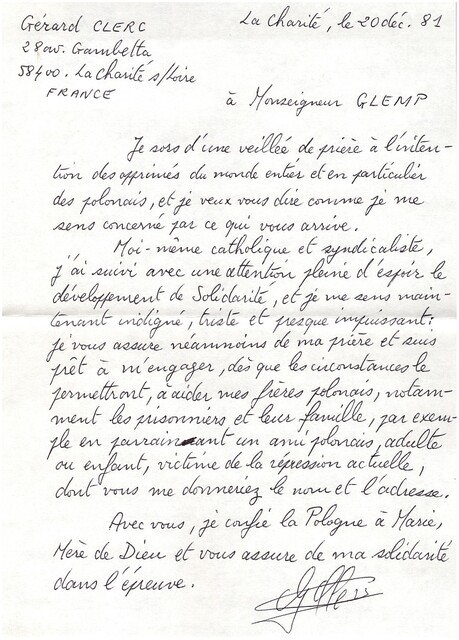 Gérard CLERC
28 av. Gambetta
58400. La Charité s/Loire
FRANCE
La Charité, le 20 déc. 81
à Monseigneur GLEMP
Je sors d'une veillée de prière à l'inten-
tion des opprimés du monde entier et en particulier
des polonais, et je veux vous dire comme je me
sens concerné par ce qui vous arrive.
Moi-même catholique et syndicaliste,
j'ai suivi avec une attention pleine d'espoir le
développement de Solidarité, et je me sens main-
tenant indigné, triste et presque impuissant:
je vous assure néanmoins de ma prière et suis
prêt à m'engager, dès que les circonstances le
permettront, à aider mes frères polonais, notam-
ment les prisonniers et leur famille, par exem-
ple en parrainant un ami polonais, adulte
ou enfant, victime de la répression actuelle,
dont vous me donneriez le nom et l'adresse.
Avec vous, je confie la Pologne à Marie,
Mère de Dieu et vous assure de ma solidarité
dans l'épreuve.